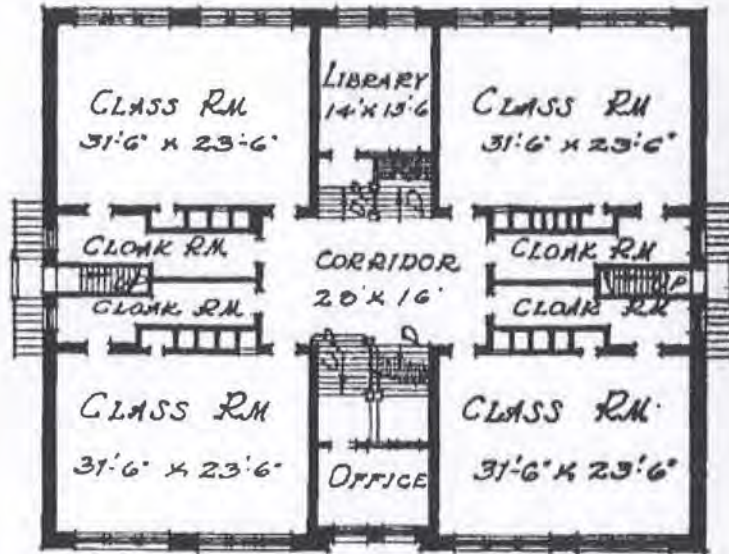 CLASS RM
31'-6" x 23'-6"
LIBRARY
14' x 13'-6
CLASS RM
31'-6" x 23'-6"
CLOAK RM
CLOAK RM
CORRIDOR
28' x 16'
CLOAK RM
CLOAK RM
P
CLASS RM
31'-6" x 23'-6"
OFFICE
CLASS RM.
31'-6" x 23'-6"